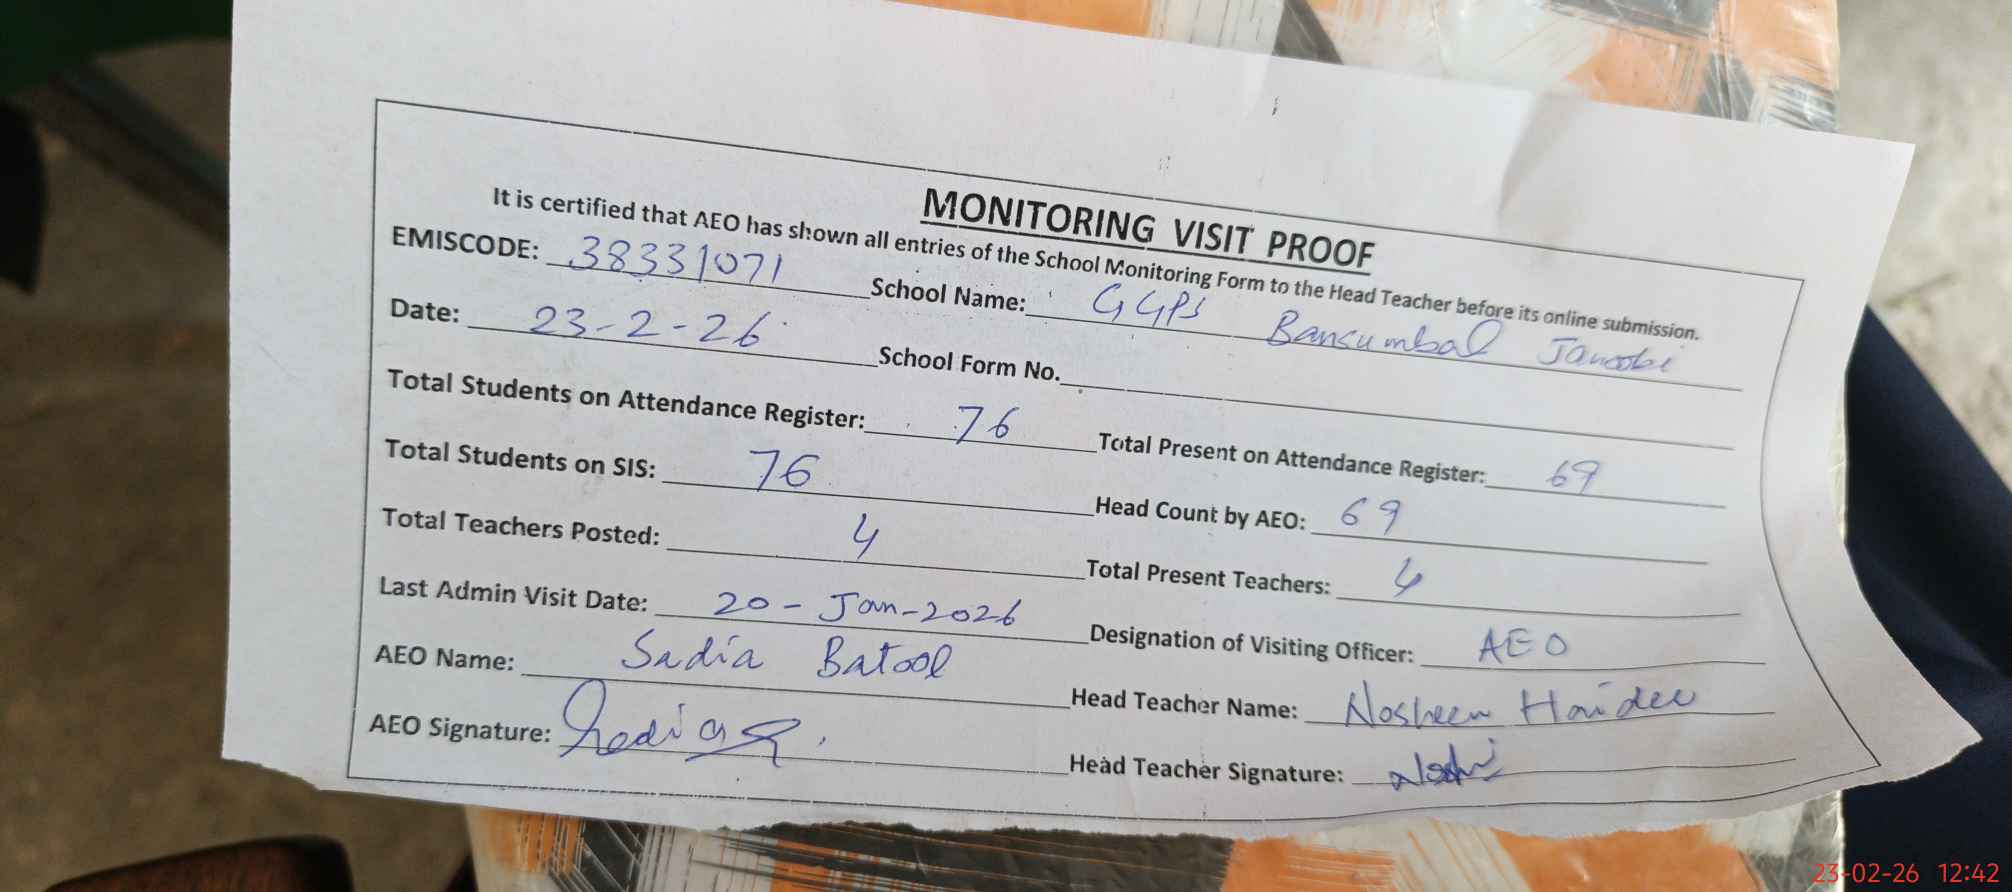 MONITORING VISIT PROOF
It is certified that AEO has shown all entries of the School Monitoring Form to the Head Teacher before its online submission.
EMISCODE: 38331071 School Name: GGPS Bansumbal Janoobi
Date: 23-2-26 School Form No.
Total Students on Attendance Register: 76 Total Present on Attendance Register: 69
Total Students on SIS: 76 Head Count by AEO: 69
Total Teachers Posted: 4 Total Present Teachers: 4
Last Admin Visit Date: 20-Jan-2026 Designation of Visiting Officer: AEO
AEO Name: Sadia Batool Head Teacher Name: Nosheen Haider
AEO Signature: Sadia Head Teacher Signature:
23-02-26 12:42